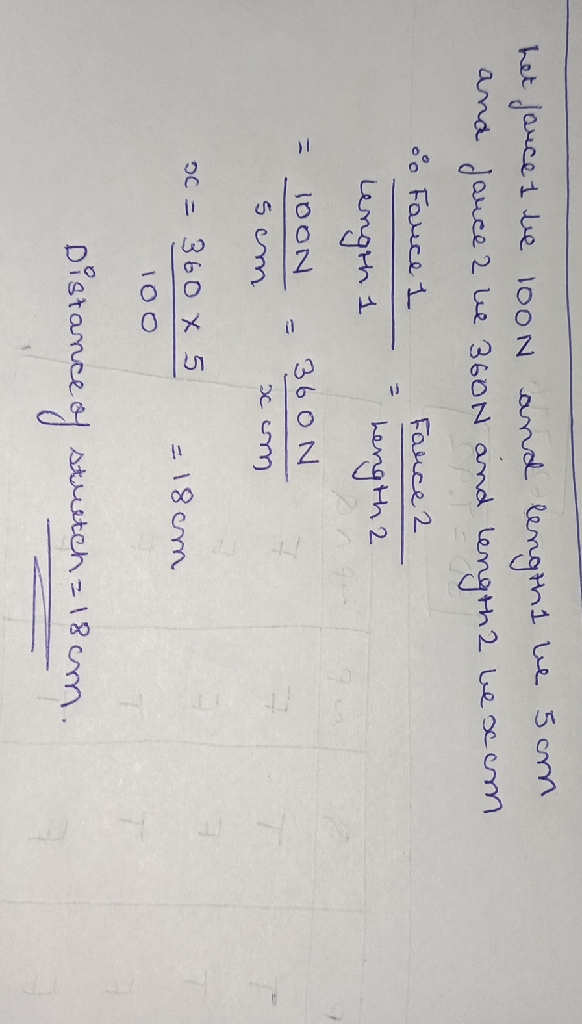 Let force 1 be 100N and length 1 be 5 cm
and force 2 be 360N and length 2 be x cm
∴ Force 1 = Force 2
length 1 Length 2
= 100N = 360N
5 cm x cm
x = 360 x 5 = 18 cm
100
Distance of stretch = 18 cm.